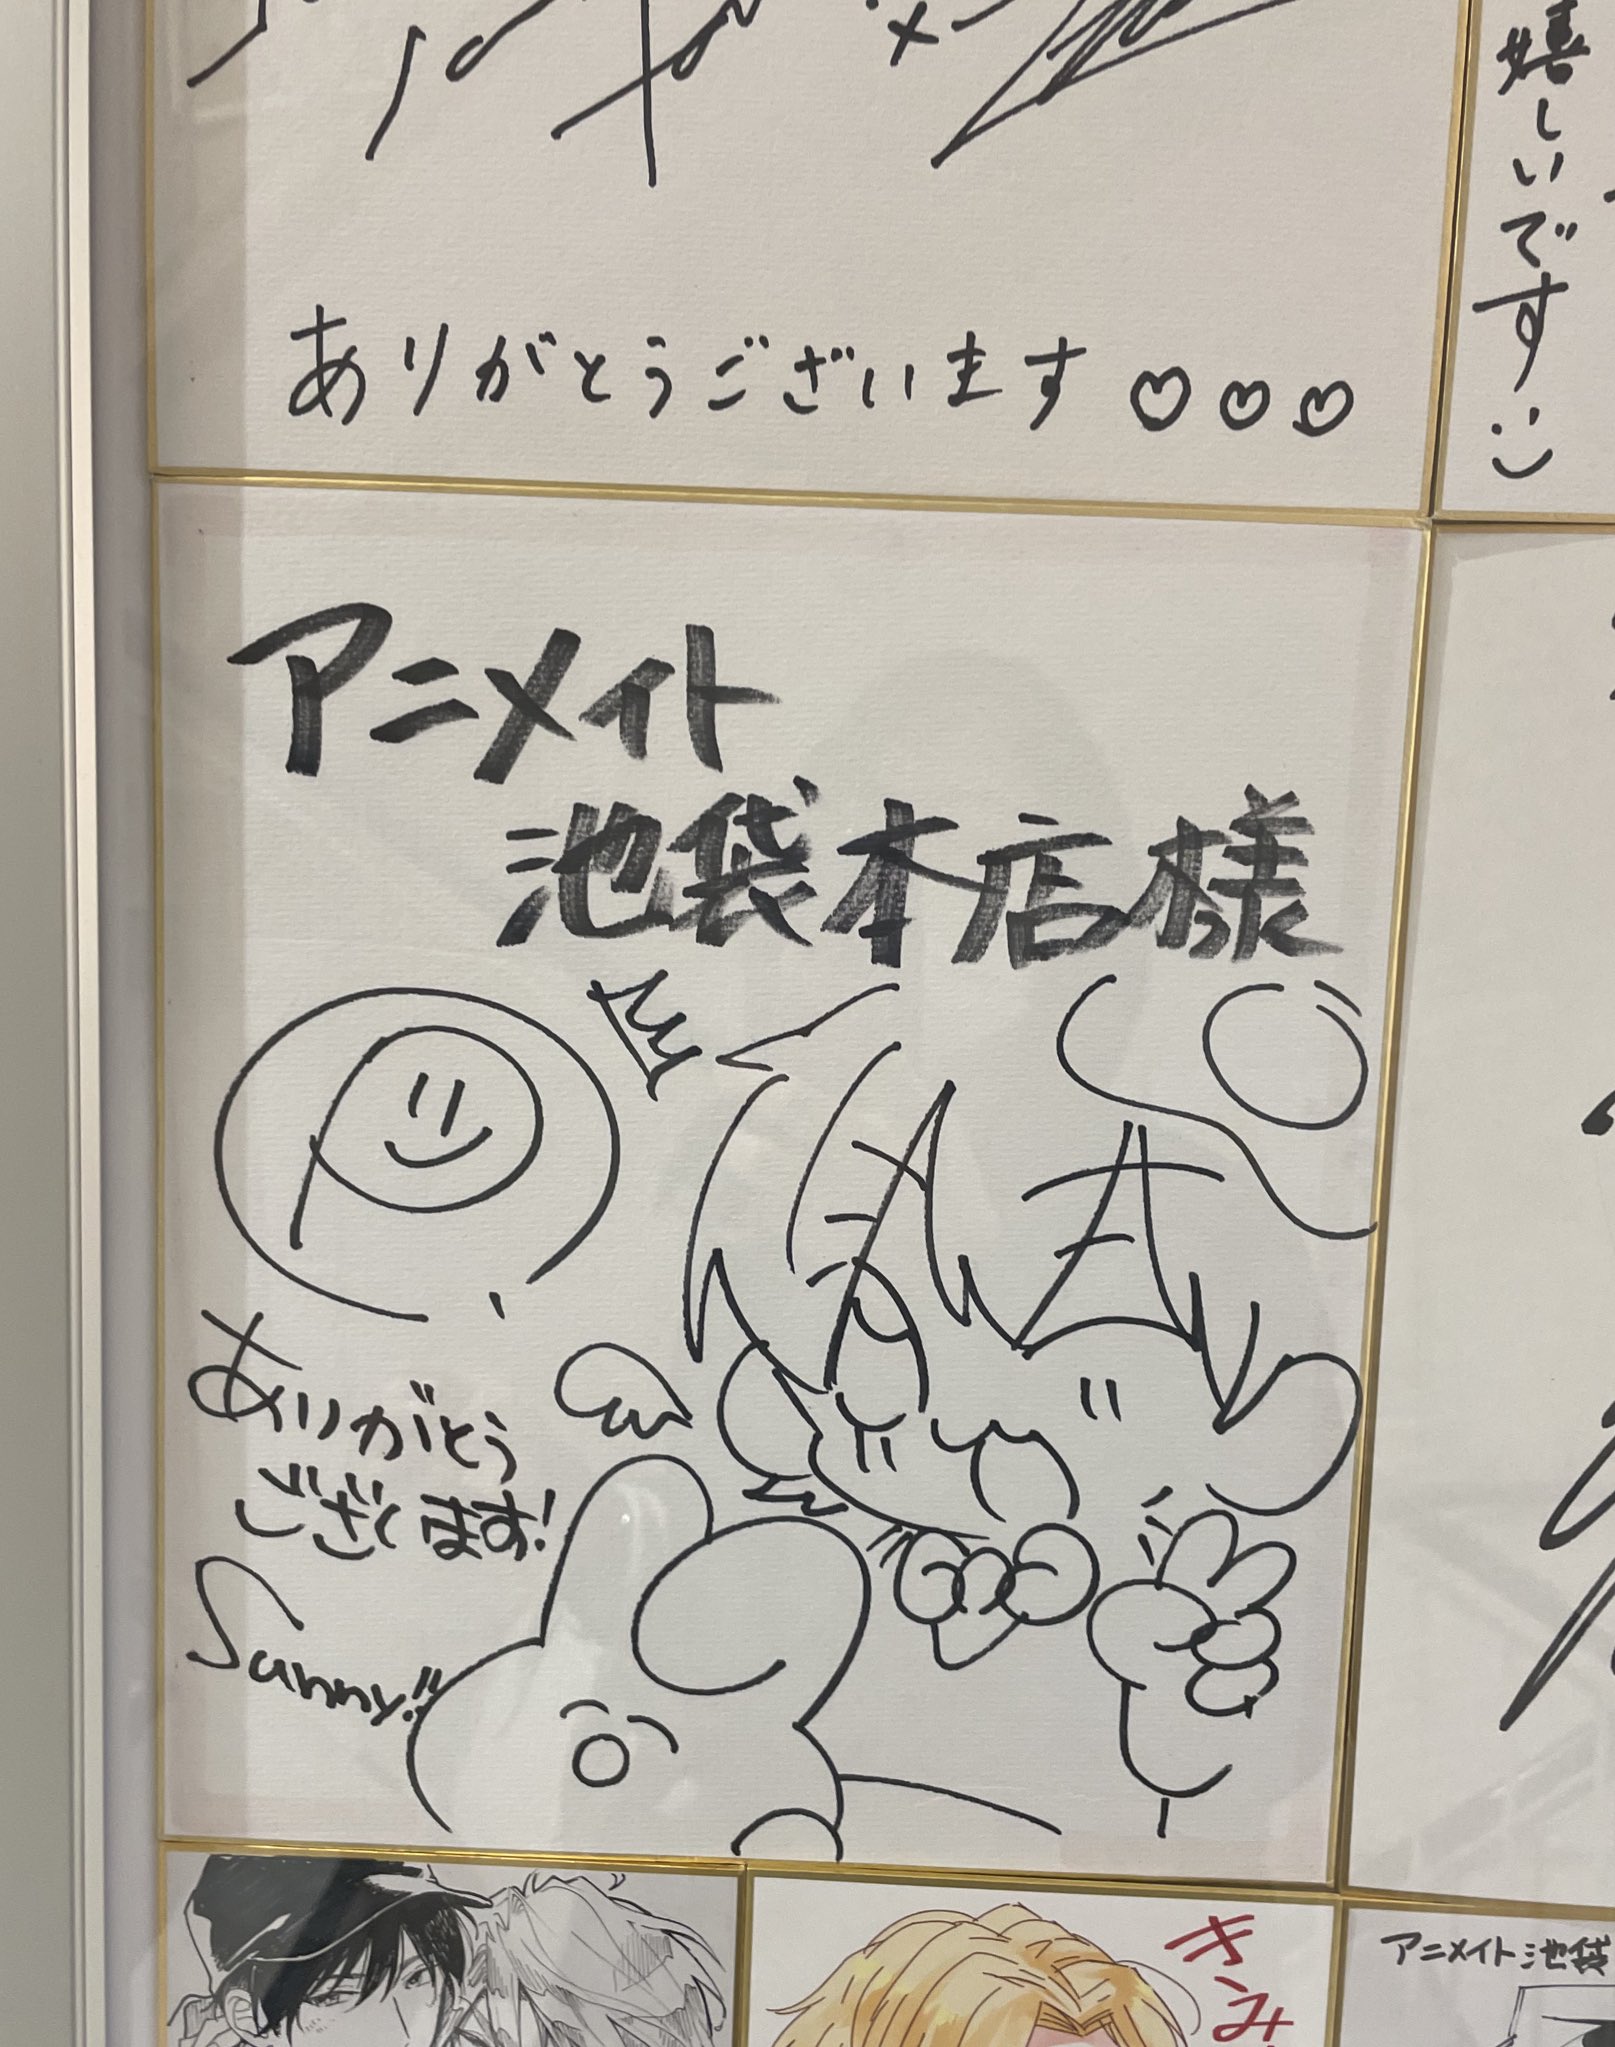 嬉しいです:)
ありがとうございます♡♡♡
アニメイト
池袋本店様
ありがとう
ございます!
Sunny!!
きみ
アニメイト池袋